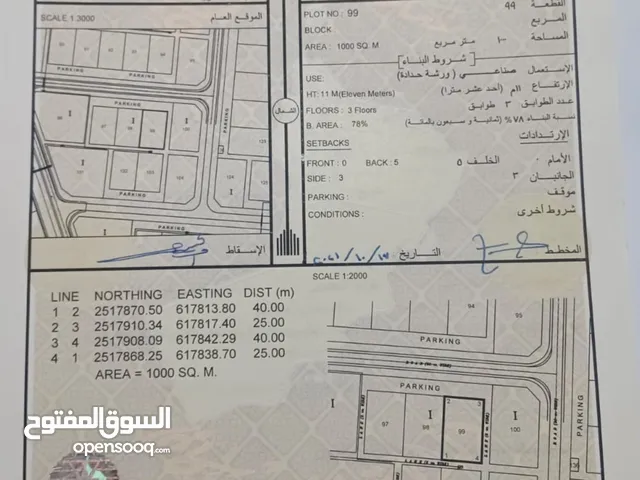 SCALE 1:3000
الموقع العام
PLOT NO : 99
القطعة 99
BLOCK
المربع
AREA : 1000 SQ. M
المساحة ١٠٠٠ متر مربع
[ شروط البناء ]
USE:
الإستعمال صناعي ( ورشة حدادة )
HT: 11 M(Eleven Meters)
الارتفاع ١١م (أحد عشر مترا)
FLOORS : 3 Floors
عدد الطوابق ٣ طوابق
B. AREA : 78%
نسبة البناء ٧٨% (ثمانية و سبعون بالمائة)
SETBACKS
الإرتدادات
FRONT : 0 BACK : 5
الأمام ٠ الخلف ٥
SIDE : 3
الجانبان ٣
PARKING :
موقف
CONDITIONS :
شروط أخرى
الشمال
PARKING
PARKING
PARKING
PARKING
الإسقاط
التاريخ
المخطط
SCALE 1:2000
LINE NORTHING EASTING DIST (m)
1 2 2517870.50 617813.80 40.00
2 3 2517910.34 617817.40 25.00
3 4 2517908.09 617842.29 40.00
4 1 2517868.25 617838.70 25.00
AREA = 1000 SQ. M.
PARKING
PARKING
PARKING
I I
97 98 99 100
2 3
1 4
السوق المفتوح
opensooq.com